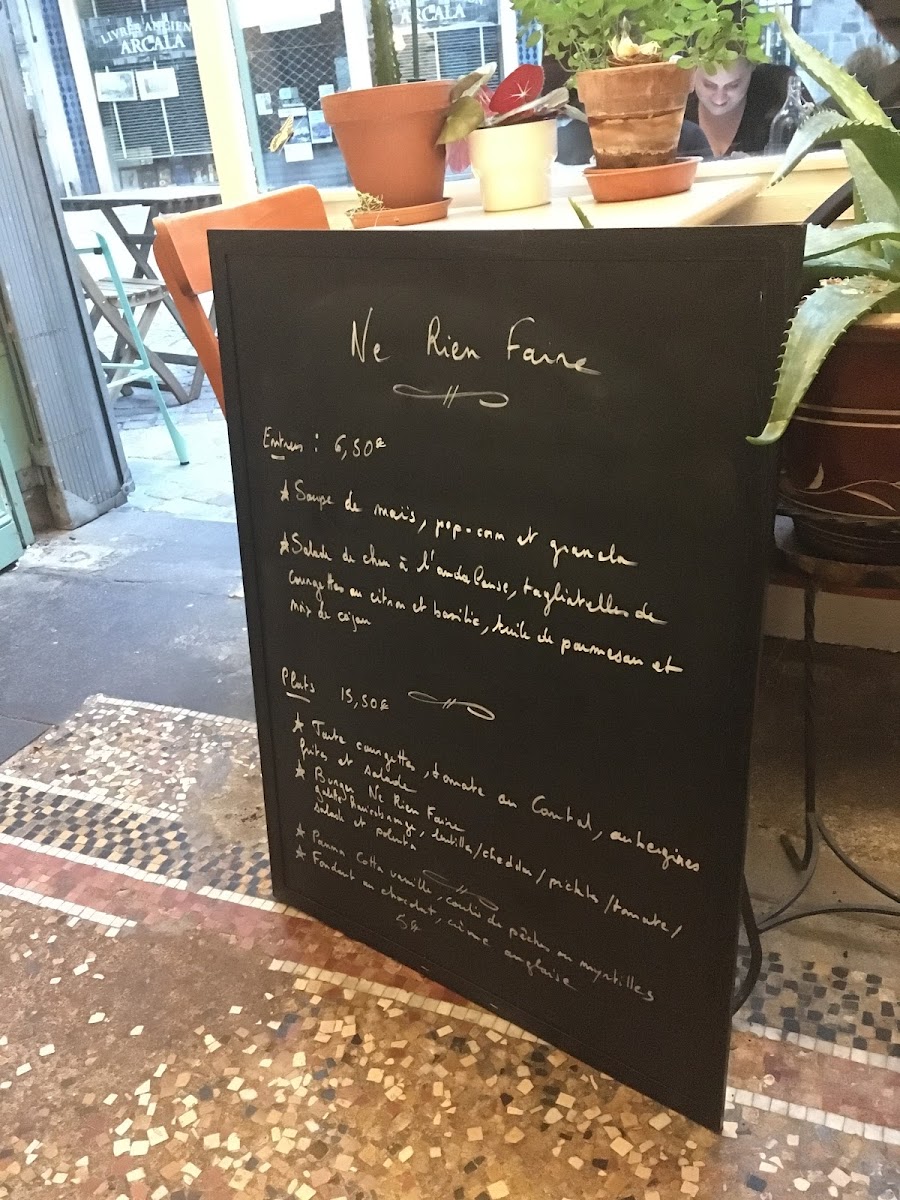 LIVRES ANCIENS
ARCALA
ARCALA
Ne Rien Faire
Entrées : 6,50€
★ Soupe de maïs, pop-corn et granola
★ Salade de chou à l'andalouse, tagliatelles de
courgettes au citron et basilic, tuile de parmesan et
noix de cajou
Plats 15,50€
★ Tarte courgettes, tomate au Comtal, aubergines
frites et salade
★ Burger Ne Rien Faire
galette haricots rouge, lentilles/cheddar/pickles/tomate/
salade et polenta
★ Panna Cotta vanille, coulis de pêches ou myrtilles
★ Fondant au chocolat, crème anglaise
5€